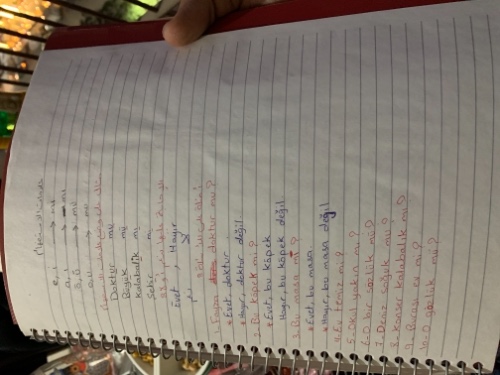 e, i → mi
a, ı → mı
ö, ü → mü
o, u → mu
Doktor mu
Büyük mü
Kalabalık mı
Şehir mi
Evet, Hayır
1. Ceyda doktor mu?
* Evet, doktor.
* Hayır, doktor değil.
2. Bu köpek mi?
* Evet, bu köpek
Hayır, bu köpek değil.
3. Bu masa mı?
* Evet, bu masa.
* Hayır, bu masa değil
4. Ev temiz mi?
5. Okul yakın mı?
6. O bir gözlük mü?
7. Deniz soğuk mu?
8. Konser kalabalık mı?
9. Burası ev mi?
10. O gözlük mü?